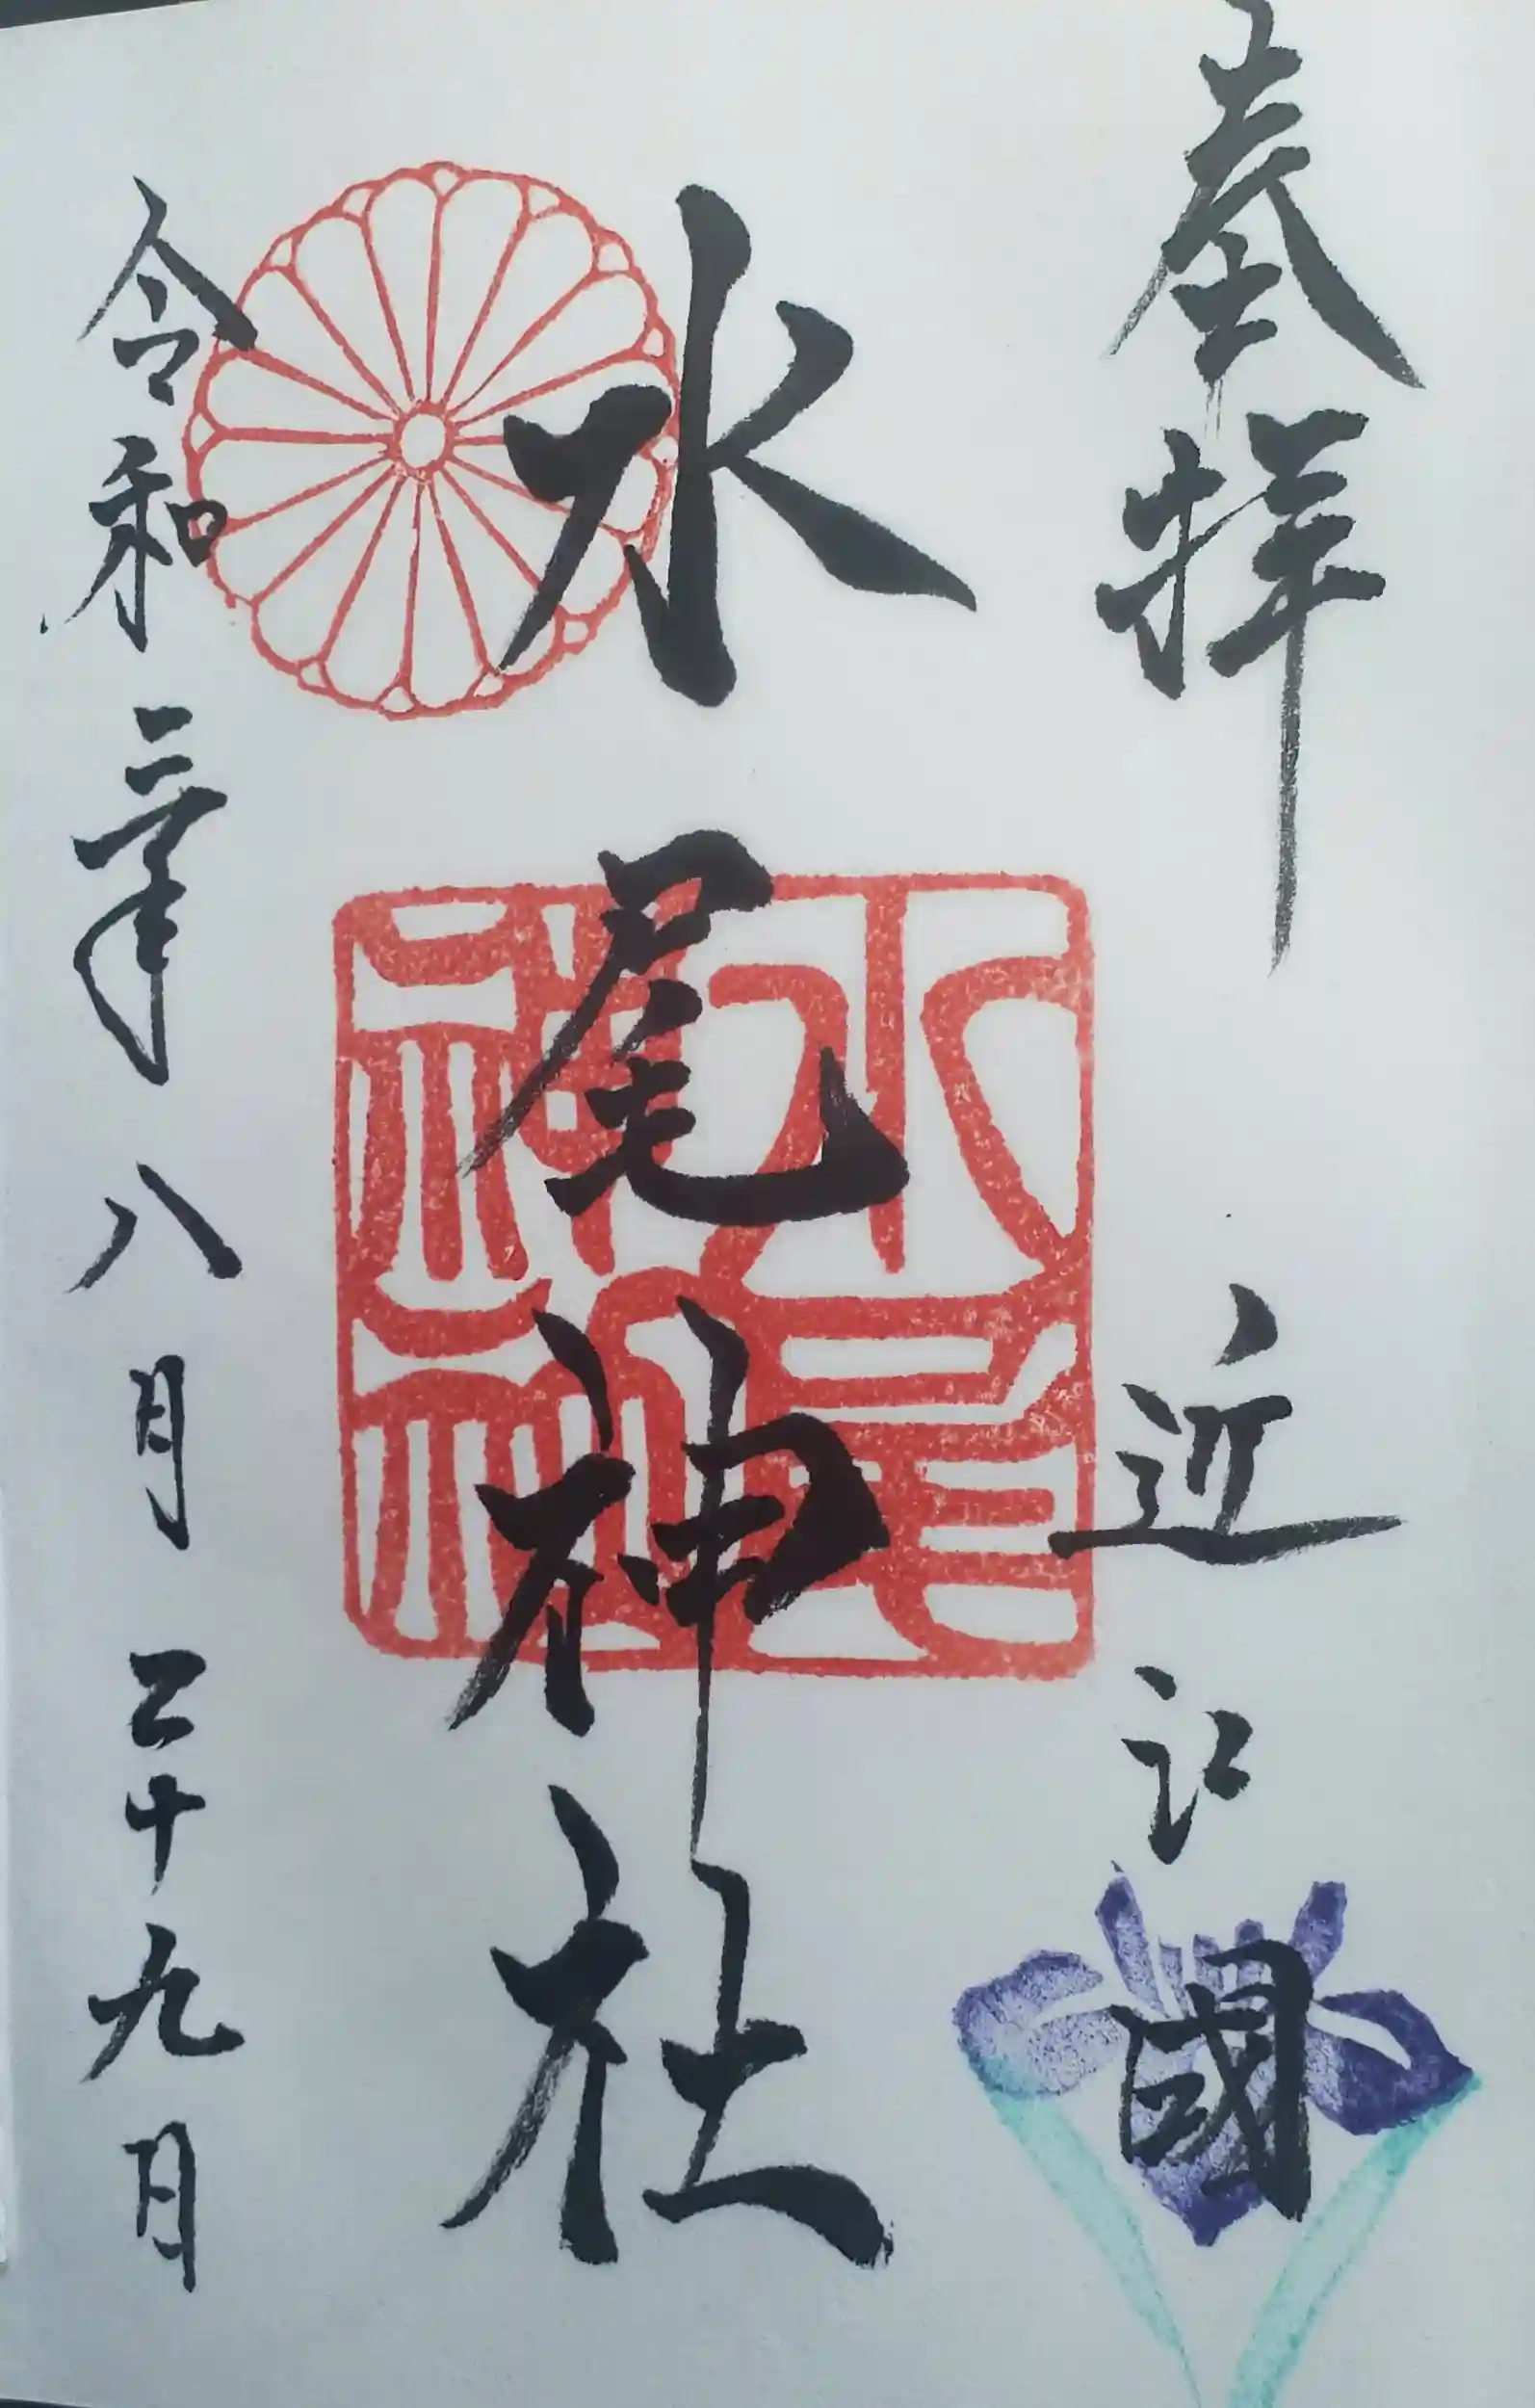 奉拝 近江國
水尾神社
令和三年八月二十九日
水尾神社